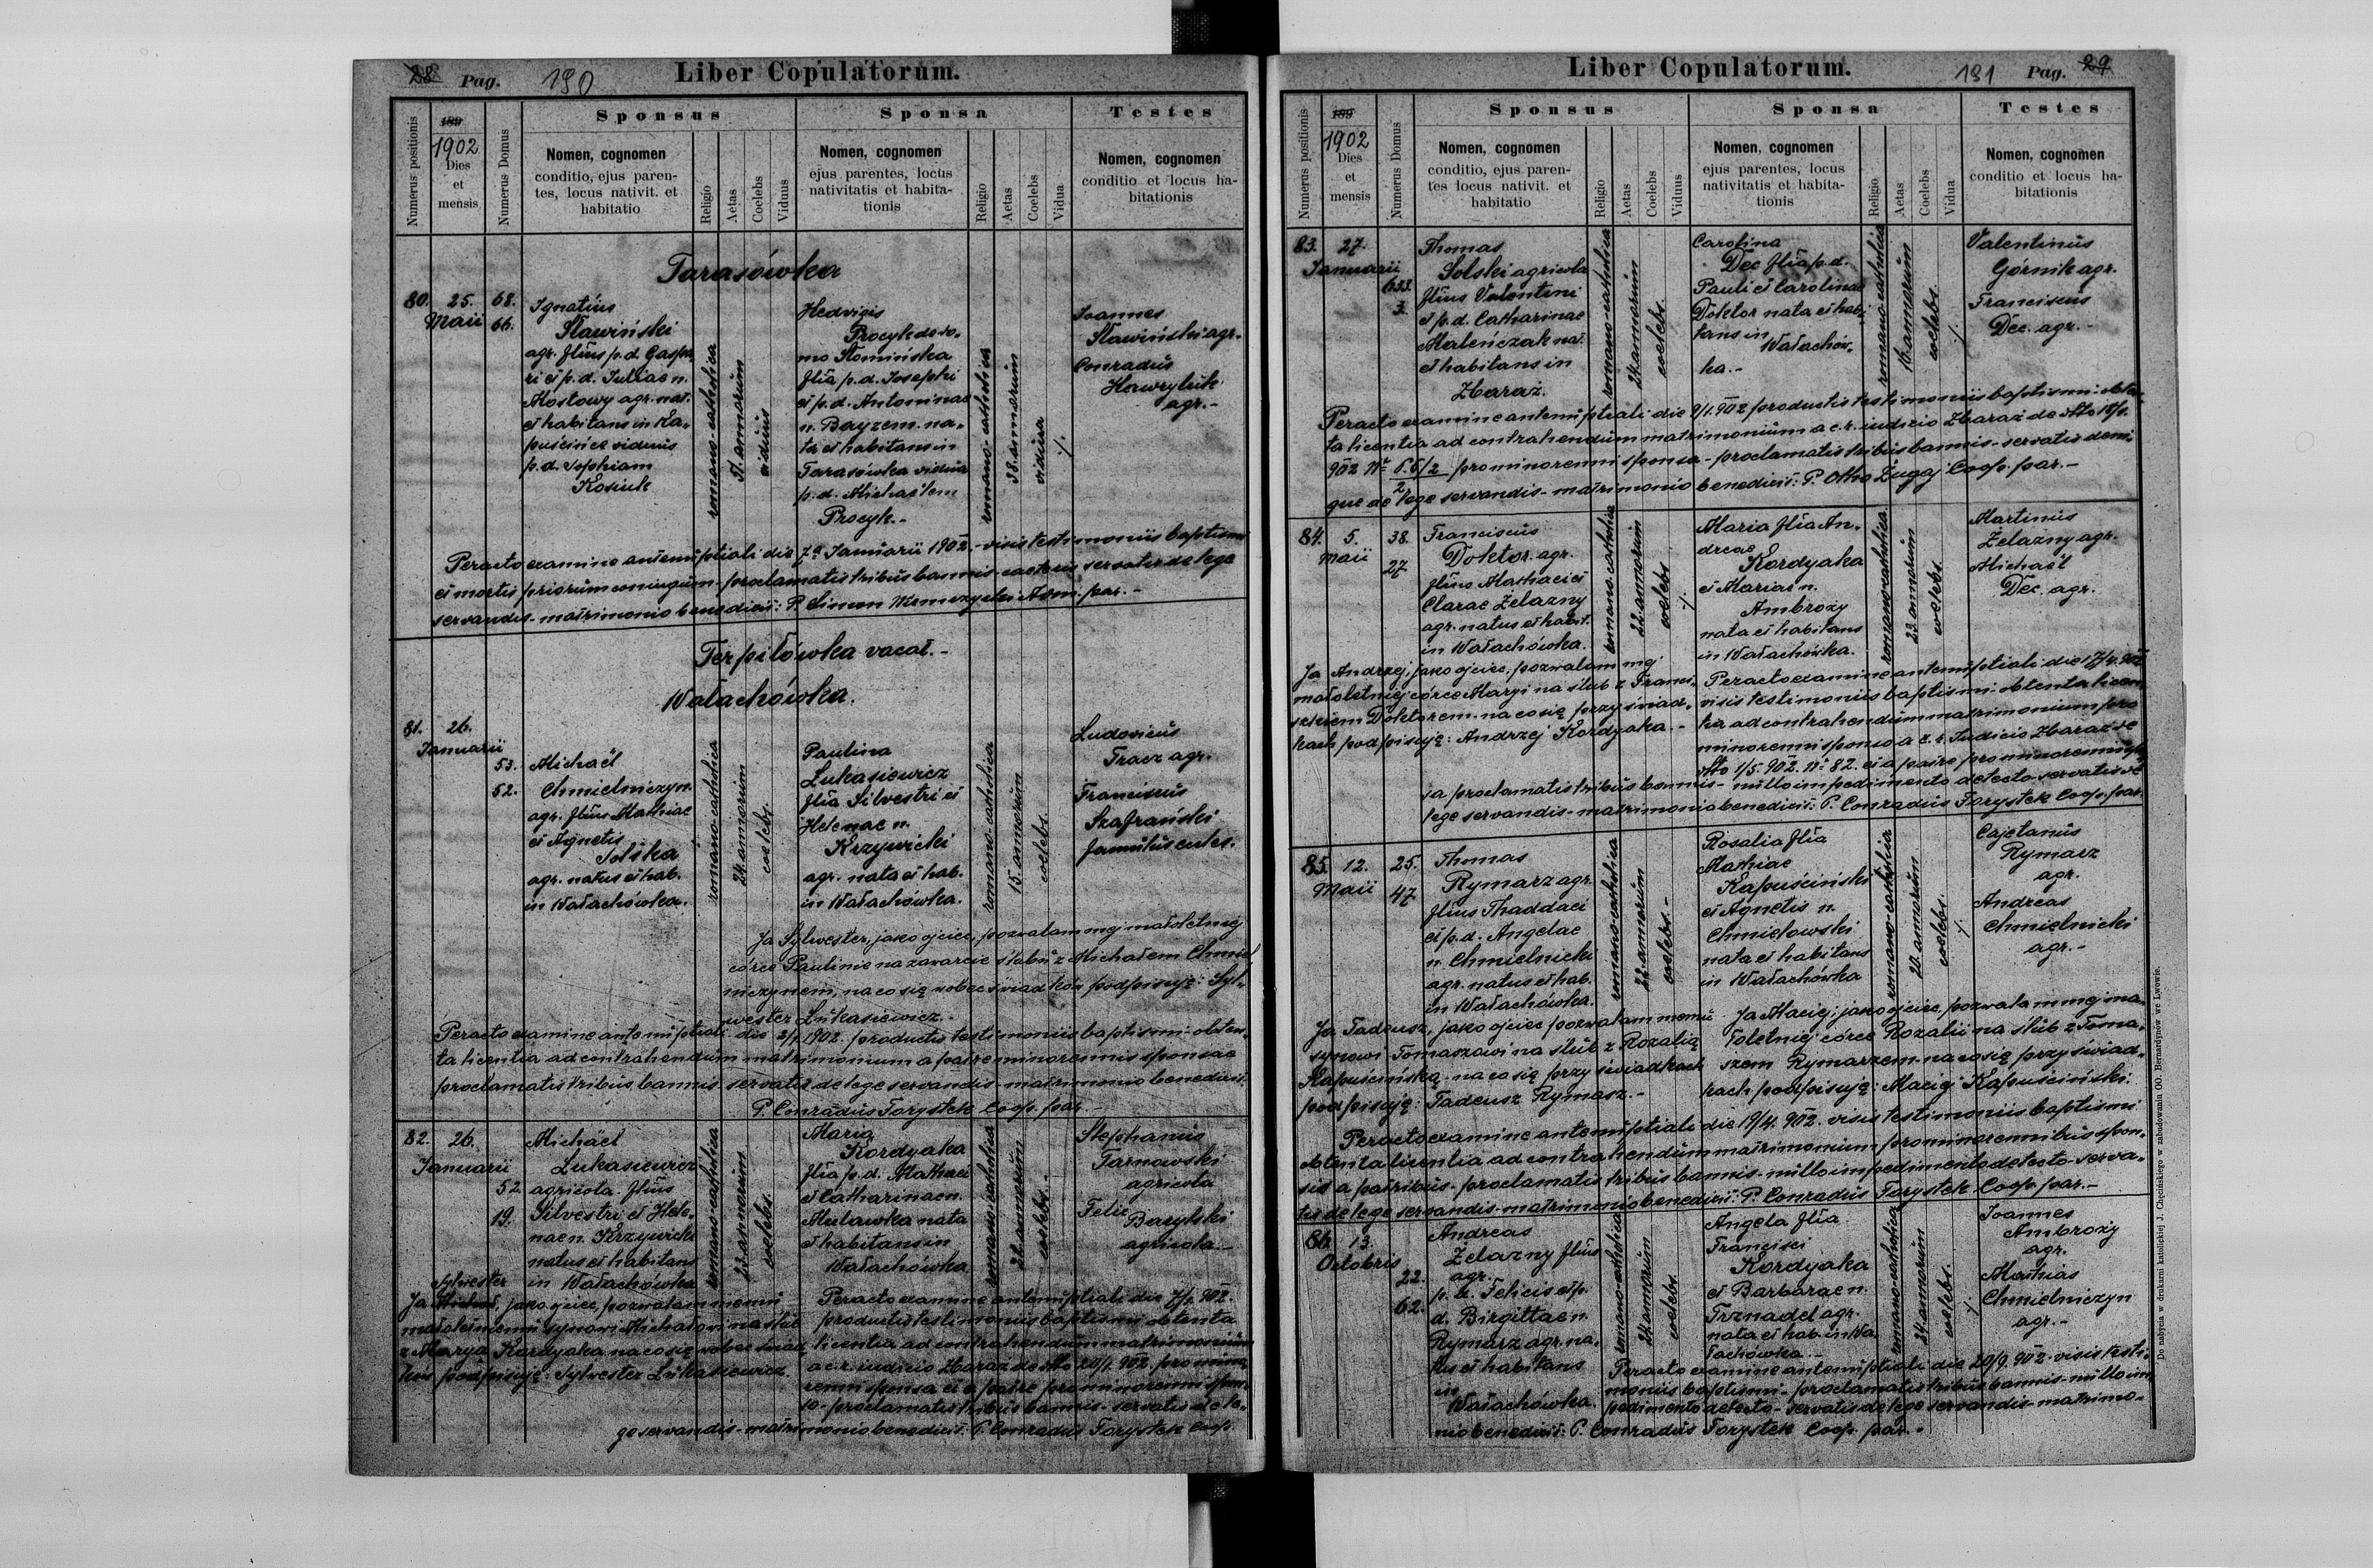 28 Pag. 190 Liber Copulatorum.
Numerus positionis
189
1902
Dies
et
mensis
Numerus Domus
Sponsus
Nomen, cognomen
conditio, ejus paren-
tes, locus nativit. et
habitatio
Religio
Aetas
Coelebs
Viduus
Sponsa
Nomen, cognomen
ejus parentes, locus
nativitatis et habita-
tionis
Religio
Aetas
Coelebs
Vidua
Testes
Nomen, cognomen
conditio et locus ha-
bitationis
Tarasówka
80. 25.
Maii
68.
66.
Ignatius
Sławiński
agr. filius p.d. Gaspa-
ri et p.d. Juliae n.
Mostowy agr. nat.
et habitans in Ka-
puścińce viduus
p.d. Sophiam
Kosiuk
romano-catholica
51 annorum
viduus
Hedvigis
Procyk de do-
mo Słomińska
filia p.d. Josephi
et p.d. Antoninae
n. Bayzem. na-
ta et habitans in
Tarasówka vidua
p.d. Michaëlem
Procyk.-
romano-catholica
38. annorum
vidua
Joannes
Sławiński agr.
Conradus
Hawryluk
agr.-
Peracto examine antenuptiali die 7a Januarii 1902.- visis testimoniis baptismi
et mortis priorum coniugum- proclamatis tribus bannis- caeteris servatis de lege
servandis- matrimonio benedixit: P. Simon Adm. par.-
Terpiłówka vacat.-
Wałachówka.
81. 26.
Januarii
53.
52.
Michaël
Chmielniczyn
agr. filius Mathiae
et Agnetis
Solska
agr. natus et hab.
in Wałachówka.
romano-catholica
24 annorum
coelebs.
Paulina
Łukasiewicz
filia Silvestri et
Helenae n.
Krzywicki
agr. nata et hab.
in Wałachówka.
romano-catholica
15. annorum
coelebs.
Ludovicus
Tracz agr.
Franciscus
Szafrański
Ja Sylwester, jako ojciec, pozwalam mej małoletniej
córce Paulinie na zawarcie ślubu z Michałem Chmiel
niczynem, na co się wobec świadków podpisuję: Syl-
wester Łukasiewicz.-
Peracto examine antenuptiali die 2/1. 1902. productis testimoniis baptismi- obten-
ta licentia ad contrahendum matrimonium a patre minorennis sponsae
proclamatis tribus bannis- servatis de lege servandis- matrimonio benedixit:
P. Conradus Forystek Coop. par.-
82. 26.
Januarii
52.
19.
Michaël
Łukasiewicz
agricola. filius
Silvestri et Hele-
nae n. Krzywicki
natus et habitans
in Wałachówka
romano-catholica
23 annorum
coelebs.
Maria
Kordyaka
filia p.d. Mathaei
et Catharinae n.
Mulawka nata
et habitans in
Wałachówka
romano-catholica
22. annorum
coelebs.
Stephanus
Tarnowski
agricola
Felix
Barylski
agricola.-
Sylwester
Ja Michał, jako ojciec, pozwalam memu
małoletniemu synowi Michałowi na ślub
z Maryą Kordyaka na co się wobec świad-
ków podpisuję: Sylwester Łukasiewicz.
Peracto examine antenuptiali die 7/1. 902.
productis testimoniis baptismi obtenta
licentia ad contrahendum matrimonium
a c.r. iudicio Zbaraż de dto 20/1. 902. pro mino-
renni sponsa et a patre pro minorenni spon-
so- proclamatis tribus bannis- servatis de le-
ge servandis- matrimonio benedixit: P. Conradus Forystek Coop.
Liber Copulatorum. 191 Pag. 29
Numerus positionis
189
1902
Dies
et
mensis
Numerus Domus
Sponsus
Nomen, cognomen
conditio, ejus paren-
tes locus nativit. et
habitatio
Religio
Aetas
Coelebs
Viduus
Sponsa
Nomen, cognomen
ejus parentes, locus
nativitatis et habita-
tionis
Religio
Aetas
Coelebs
Vidua
Testes
Nomen, cognomen
conditio et locus ha-
bitationis
83. 27.
Januarii
633.
3.
Thomas
Solski agricola
filius Valentini
et p.d. Catharinae
Maleńczak nat.
et habitans in
Zbaraż.
romano-catholica
24 annorum
coelebs.
Carolina
Dec filia p.d.
Pauli et Carolinae
Doktor nata et habi
tans in
Wałachów-
ka.-
romano-catholica
16 annorum
coelebs.
Valentinus
Górnik agr.
Franciscus
Dec. agr.-
Peracto examine antenuptiali die 9/1. 902 productis testimoniis baptismi: obten-
ta licentia ad contrahendum matrimonium a c.r. iudicio Zbaraż de dto 18/1.
902 No P. 5/2 pro minorenni sponsa- proclamatis tribus bannis- servatis deni-
2
que de lege servandis- matrimonio benedixit: P. Otho Zugaj Coop. par.-
84. 5.
Maii
38.
27
Franciscus
Doktor. agr.
filius Mathaei et
Clarae Żelazny
agr. natus et habit.
in Wałachówka.
romano-catholica
22. annorum
coelebs
Maria filia An-
dreae
Kordyaka
et Mariae n.
Ambroży
nata et habitans
in Wałachówka.
romano-catholica
23. annorum
coelebs.
Martinus
Żelazny agr.
Michaël
Dec. agr.
Ja Andrzej, jako ojciec, pozwalam mej
małoletniej córce Maryi na ślub z Franci-
szkiem Doktorem- na co się przy świad-
kach podpisuję: Andrzej Kordyaka.-
Peracto examine antenuptiali die 17/4. 902
visis testimoniis baptismi- obtenta licen-
tia ad contrahendum matrimonium pro
minorenni sponso a c.r. Judicio Zbaraż de
dto 1/5. 902. No 82. et a patre pro minorenni
sa proclamatis tribus bannis- nullo impedimento detecto- servatis de
lege servandis- matrimonio benedixit: P. Conradus Forystek Coop. par.
85. 12.
Maii
25.
47
Thomas
Rymarz agr.
filius Thaddaei
et p.d. Angelae
n. Chmielnicki
agr. natus et hab.
in Wałachówka.
romano-catholica
22. annorum
coelebs.-
Rosalia filia
Mathiae
Kapuściński
et Agnetis n.
Chmielowski
nata et habitans
in Wałachówka
romano-catholica
20. annorum
coelebs.
Cajetanus
Rymarz
agr.
Andreas
Chmielnicki
agr.-
Ja Tadeusz, jako ojciec pozwalam memu
synowi Tomaszowi na ślub z Rozalią
Kapuścińską- na co się przy świadkach
podpisuję: Tadeusz Rymasz.-
Ja Maciej, jako ojciec, pozwalam mej ma-
łoletniej córce Rozalii na ślub z Toma-
szem Rymarzem- na co się przy świad-
kach podpisuję: Maciej Kapuściński.
Peracto examine antenuptiali die 19/4. 902. visis testimoniis baptismi
obtenta licentia ad contrahendum matrimonium pro minorennibus spon-
sis a patribus- proclamatis tribus bannis- nullo impedimento detecto- serva-
tis de lege servandis- matrimonio benedixit: P. Conradus Forystek Coop. par.-
86. 13.
Octobris
22.
62.
Andreas
Żelazny filius
agr.
p.d. Felicis et p.
d. Birgittae n.
Rymarz agr. na-
tus et habitans
in
Wałachówka.
romano-catholica
24 annorum
coelebs
Angela filia
Francisci
Kordyaka
et Barbarae n.
Trznadel agr.
nata et hab. in Wa-
łachówka.-
romano-catholica
24. annorum
coelebs.
Joannes
Ambroży
agr.
Mathias
Chmielniczyn
agr.-
Peracto examine antenuptiali die 20/9. 902- visis testi-
moniis baptismi- proclamatis tribus bannis- nullo im
pedimento detecto- servatis de lege servandis- matrimo-
nio benedixit: P. Conradus Forystek Coop. par.
Do nabycia w drukarni katolickiej J. Chęcińskiego w zabudowaniu OO. Bernardynów we Lwowie.